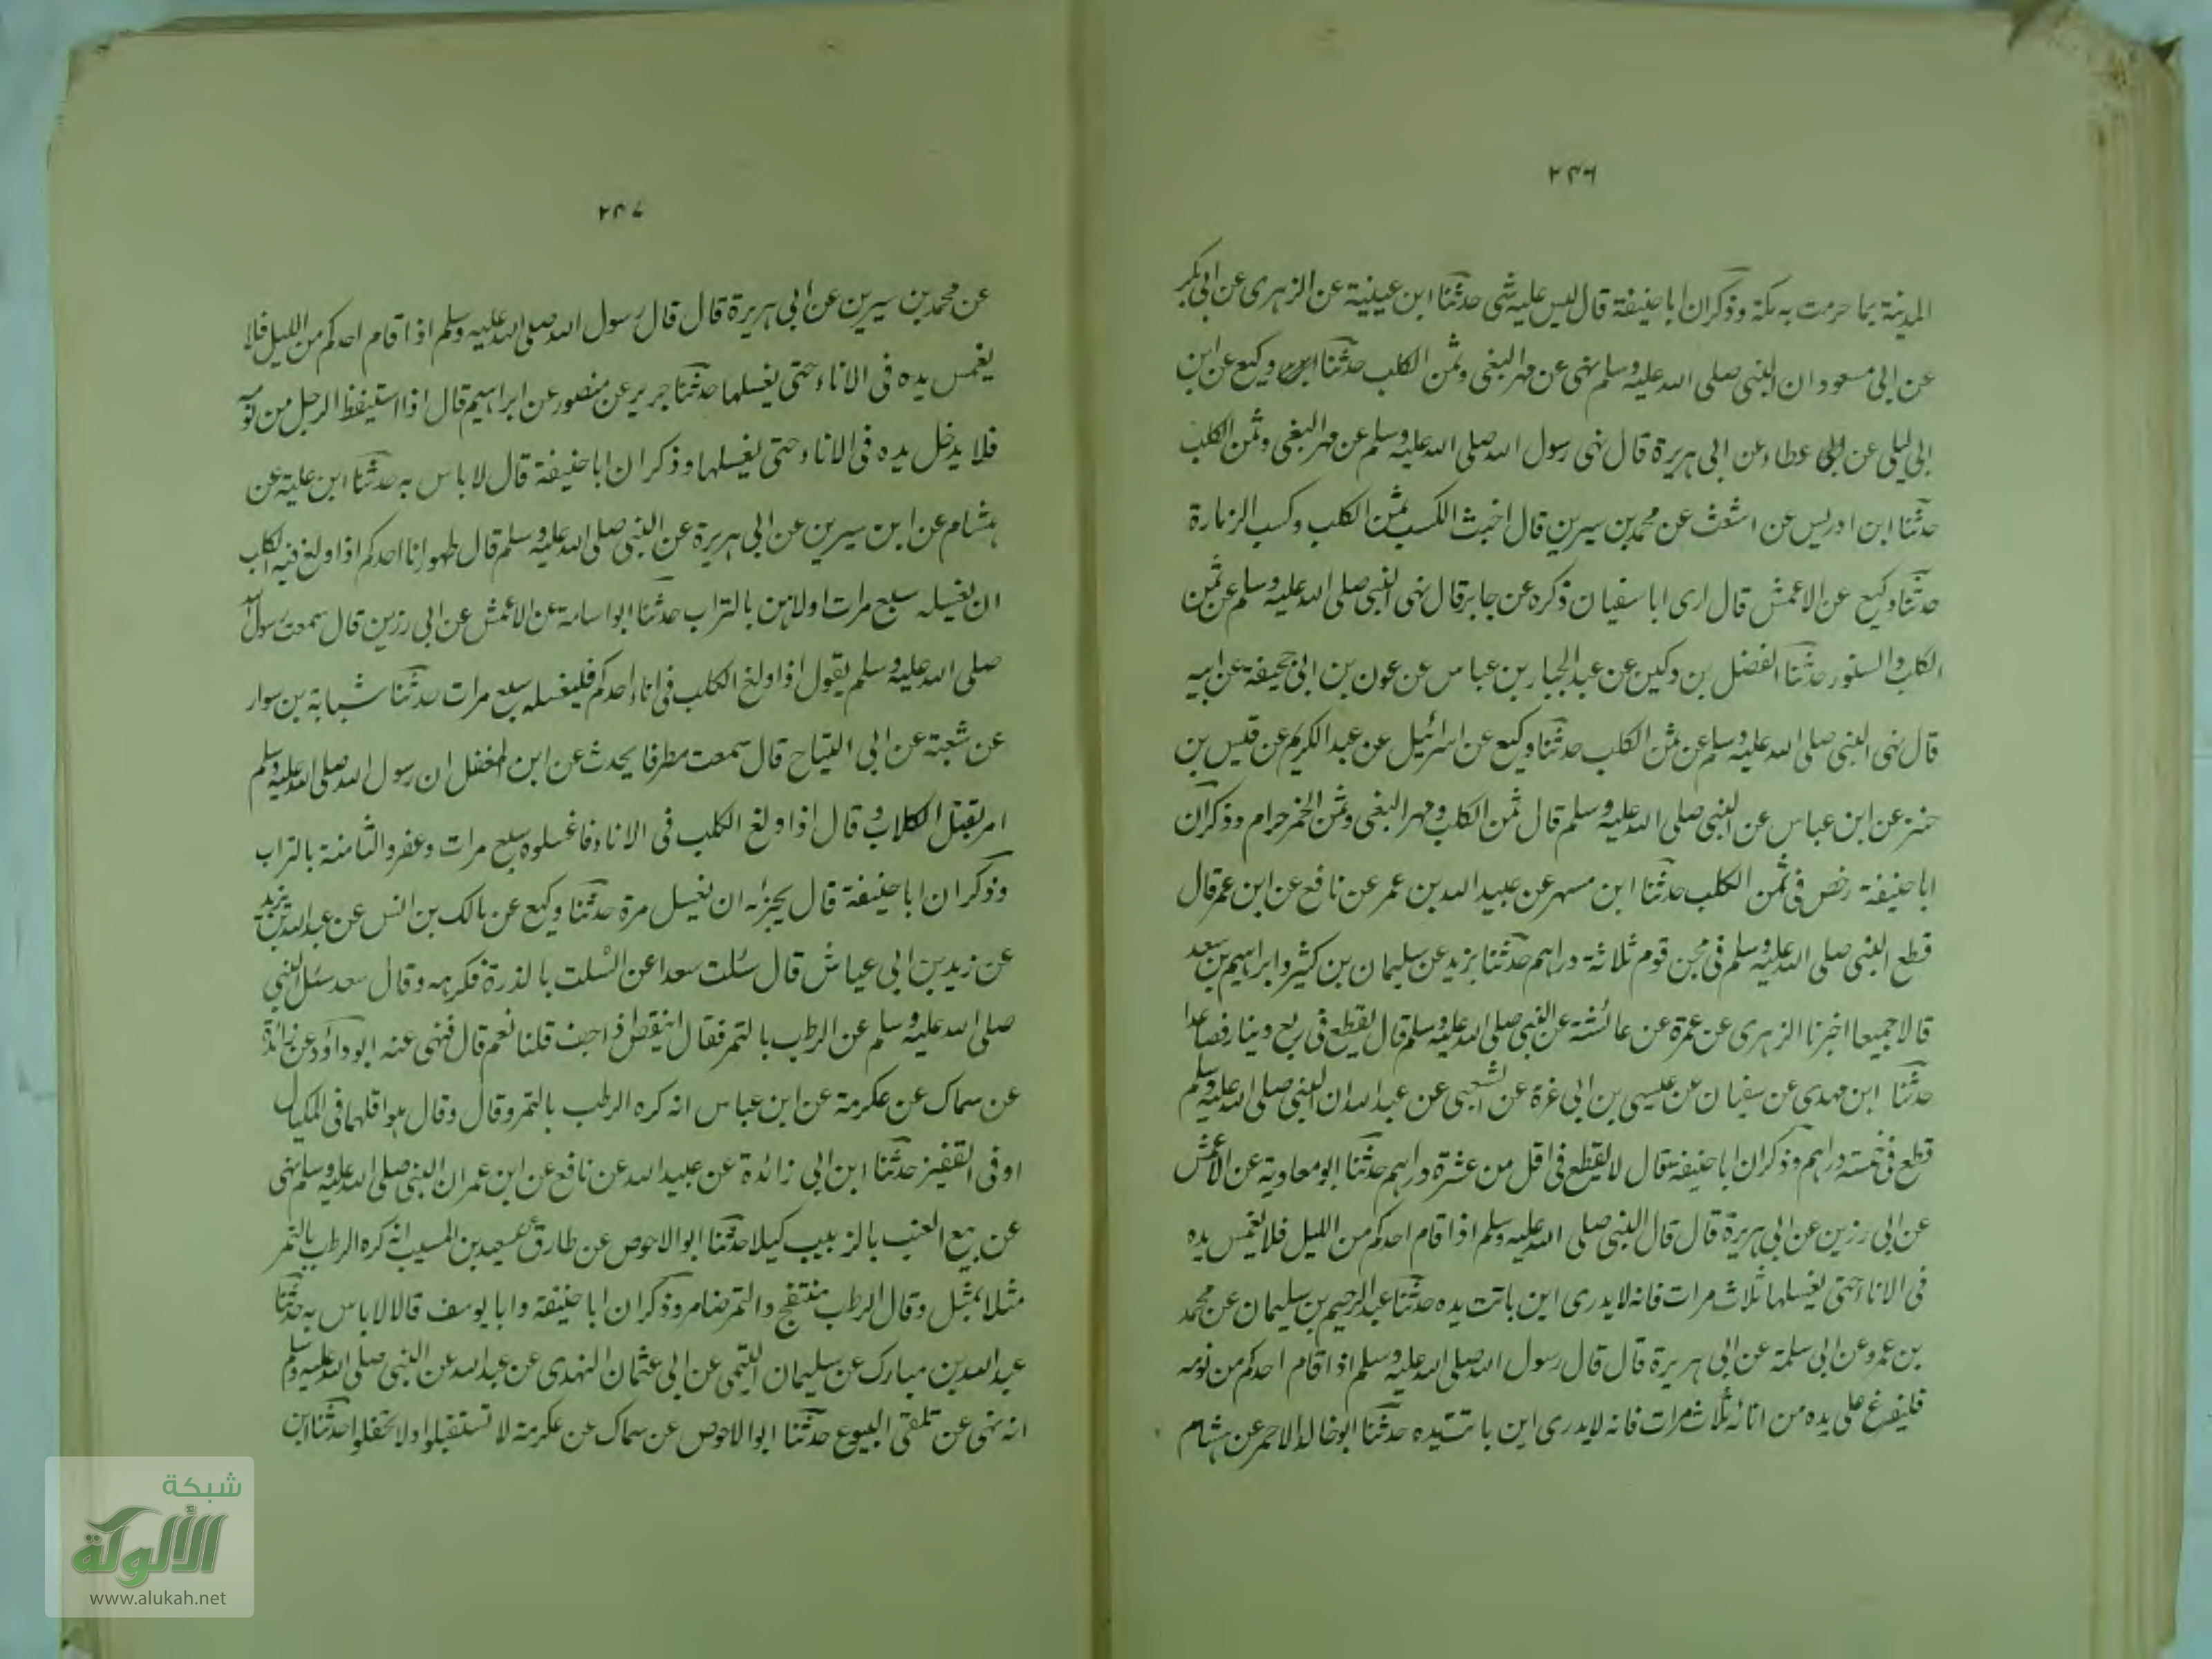 ٢٤٦
المدينة بما حرمت به مكة وذكر ان ابا حنيفة قال ليس عليه شى حدثنا ابن عيينة عن الزهرى عن ابى بكر
عن ابى مسعود ان النبى صلى الله عليه وسلم نهى عن مهر البغى وثمن الكلب حدثنا وكيع عن ابن
ابى ليلى عن عطاء عن ابى هريرة قال نهى رسول الله صلى الله عليه وسلم عن مهر البغى وثمن الكلب
حدثنا ابن ادريس عن اشعث عن محمد بن سيرين قال اخبث الكسب ثمن الكلب وكسب الزمارة
حدثنا وكيع عن الاعمش قال ارى ابا سفيان ذكره عن جابر قال نهى النبى صلى الله عليه وسلم عن ثمن
الكلب والسنور حدثنا الفضل بن دكين عن عبد الجبار بن عباس عن عون بن ابى جحيفة عن ابيه
قال نهى النبى صلى الله عليه وسلم عن ثمن الكلب حدثنا وكيع عن اسرائيل عن عبد الكريم عن قيس بن
حبتر عن ابن عباس عن النبى صلى الله عليه وسلم قال ثمن الكلب ومهر البغى وثمن الخمر حرام وذكر ان
ابا حنيفة رخص فى ثمن الكلب حدثنا ابن مسهر عن عبيد الله بن عمر عن نافع عن ابن عمر قال
قطع النبى صلى الله عليه وسلم فى مجن قوم ثلاثة دراهم حدثنا يزيد عن سليمان بن كثير وابراهيم بن سعد
قالا جميعا اخبرنا الزهرى عن عمرة عن عائشة عن النبى صلى الله عليه وسلم قال يقطع فى ربع دينار فصاعدا
حدثنا ابن مهدى عن سفيان عن عيسى بن ابى عزة عن الشعبى عن عبد الله ان النبى صلى الله عليه وسلم
قطع فى خمسة دراهم وذكر ان ابا حنيفة قال لا يقطع فى اقل من عشرة دراهم حدثنا ابو معاوية عن الاعمش
عن ابى رزين عن ابى هريرة قال قال النبى صلى الله عليه وسلم اذا قام احدكم من الليل فلا يغمس يده
فى الاناء حتى يغسلها ثلاث مرات فانه لا يدرى اين باتت يده حدثنا عبد الرحيم بن سليمان عن محمد
بن عمرو عن ابى سلمة عن ابى هريرة قال قال رسول الله صلى الله عليه وسلم اذا قام احدكم من نومه
فليفرغ على يده من انائه ثلاث مرات فانه لا يدرى اين باتت يده حدثنا ابو خالد الاحمر عن هشام
٢٤٧
عن محمد بن سيرين عن أبى هريرة قال قال رسول الله صلى الله عليه وسلم اذا قام احدكم من الليل فلا
يغمس يده فى الاناء حتى يغسلها حدثنا جرير عن منصور عن ابراهيم قال اذا استيقظ الرجل من نومه
فلا يدخل يده فى الاناء حتى يغسلها وذكر ان ابا حنيفة قال لا باس به حدثنا ابن علية عن
هشام عن ابن سيرين عن ابى هريرة عن النبى صلى الله عليه وسلم قال طهور اناء احدكم اذا ولغ فيه الكلب
ان يغسله سبع مرات اولاهن بالتراب حدثنا ابو اسامة عن الاعمش عن ابى رزين قال سمعت رسول الله
صلى الله عليه وسلم يقول اذا ولغ الكلب فى اناء احدكم فليغسله سبع مرات حدثنا شبابة بن سوار
عن شعبة عن ابى التياح قال سمعت مطرفا يحدث عن ابن المغفل ان رسول الله صلى الله عليه وسلم
امر بقتل الكلاب وقال اذا ولغ الكلب فى الاناء فاغسلوه سبع مرات وعفروا الثامنة بالتراب
وذكر ان ابا حنيفة قال يجزئه ان يغسل مرة حدثنا وكيع عن مالك بن انس عن عبد الله بن يزيد
عن زيد بن ابى عياش قال سئلت سعدا عن السلت بالذرة فكرهه وقال سعد سئل النبي
صلى الله عليه وسلم عن الرطب بالتمر فقال اينقص اذا جف قلنا نعم قال فنهى عنه ابو داؤد عن زائدة
عن سماك عن عكرمة عن ابن عباس انه كره الرطب بالتمر وقال وقال هو اقلهما فى المكيال
او فى القفيز حدثنا ابن ابى زائدة عن عبيد الله عن نافع عن ابن عمر ان النبى صلى الله عليه وسلم نهى
عن بيع العنب بالزبيب كيلا حدثنا ابو الاحوص عن طارق عن سعيد بن المسيب انه كره الرطب بالتمر
مثلا بمثل وقال الرطب منتفج والتمر ضامر وذكر ان ابا حنيفة وابا يوسف قالا لا باس به حدثنا
عبد الله بن مبارك عن سليمان التيمى عن ابى عثمان النهدى عن عبد الله عن النبى صلى الله عليه وسلم
انه نهى عن تلقى البيوع حدثنا ابو الاحوص عن سماك عن عكرمة لا تستقبلوا ولا تحفلوا حدثنا ابن
شبكة
الألوكة
www.alukah.net